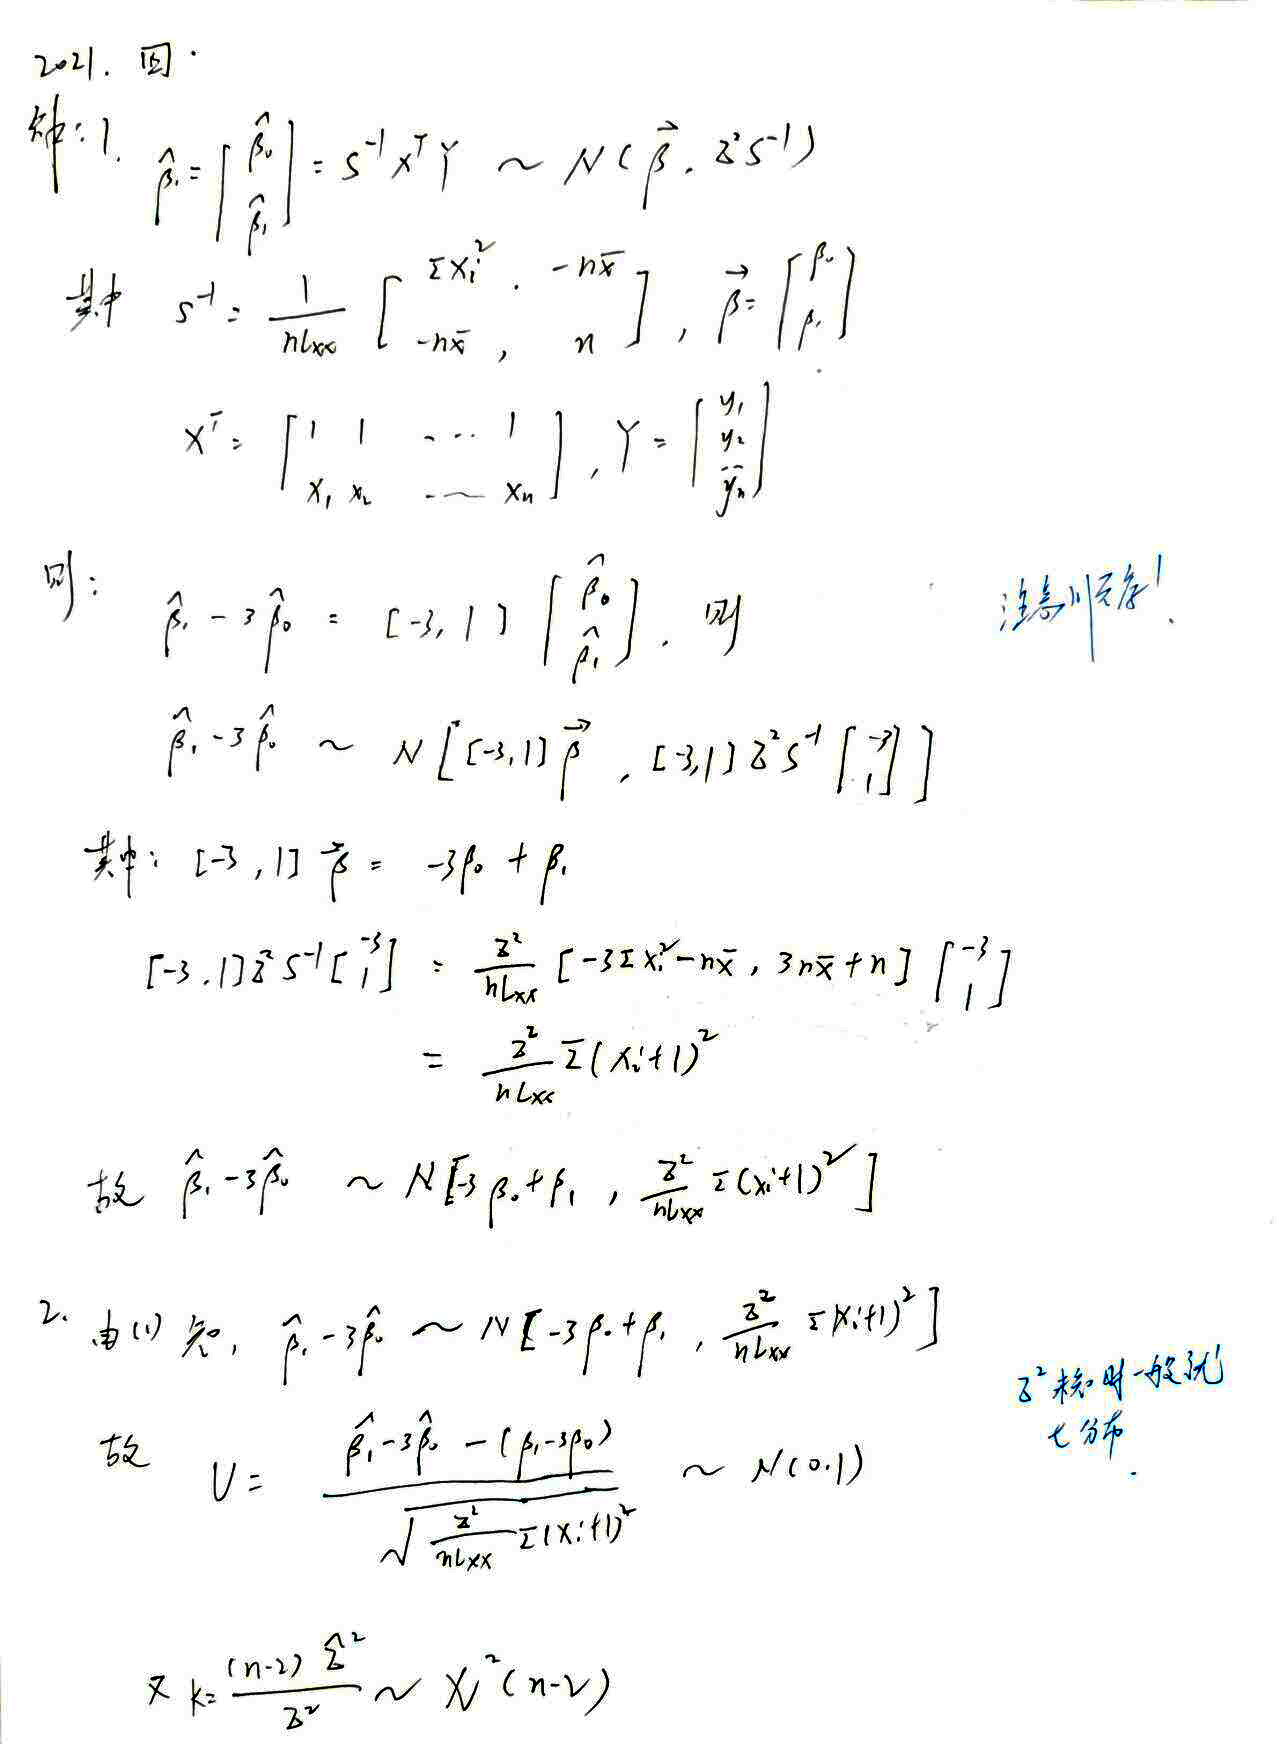 2021. 四.
解:1. β̂ = [β̂₀ β̂₁] = S⁻¹XᵀY ~ N(β⃗, σ²S⁻¹)
其中 S⁻¹ = 1/(nLxx) [Σxᵢ², -nx̄; -nx̄, n], β⃗ = [β₀ β₁]
Xᵀ = [1 1 ... 1; x₁ x₂ ... xₙ], Y = [y₁ y₂ ... yₙ]
则: β̂₁ - 3β̂₀ = [-3, 1] [β̂₀ β̂₁], 则
注意顺序!
β̂₁ - 3β̂₀ ~ N[[-3,1]β⃗, [-3,1]σ²S⁻¹[-3 1]]
其中: [-3, 1]β⃗ = -3β₀ + β₁
[-3, 1]σ²S⁻¹[-3 1] = σ²/(nLxx) [-3Σxᵢ² - nx̄, 3nx̄ + n] [-3 1]
= σ²/(nLxx) Σ(xᵢ+1)²
故 β̂₁ - 3β̂₀ ~ N[-3β₀ + β₁, σ²/(nLxx) Σ(xᵢ+1)²]
2. 由(1)知, β̂₁ - 3β̂₀ ~ N[-3β₀ + β₁, σ²/(nLxx) Σ(xᵢ+1)²]
σ²未知时一般就
t分布.
故 U = (β̂₁ - 3β̂₀ - (β₁ - 3β₀)) / √(σ²/(nLxx) Σ(xᵢ+1)²) ~ N(0.1)
又 k = (n-2)σ̂²/σ² ~ χ²(n-2)